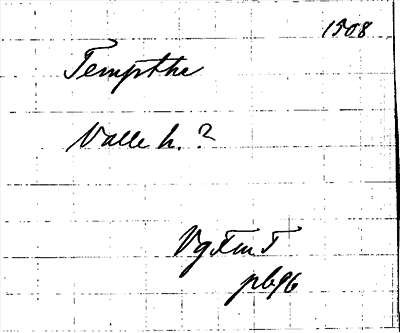 1508
Tempthe
Valle h. ?
VgFmT
pb96